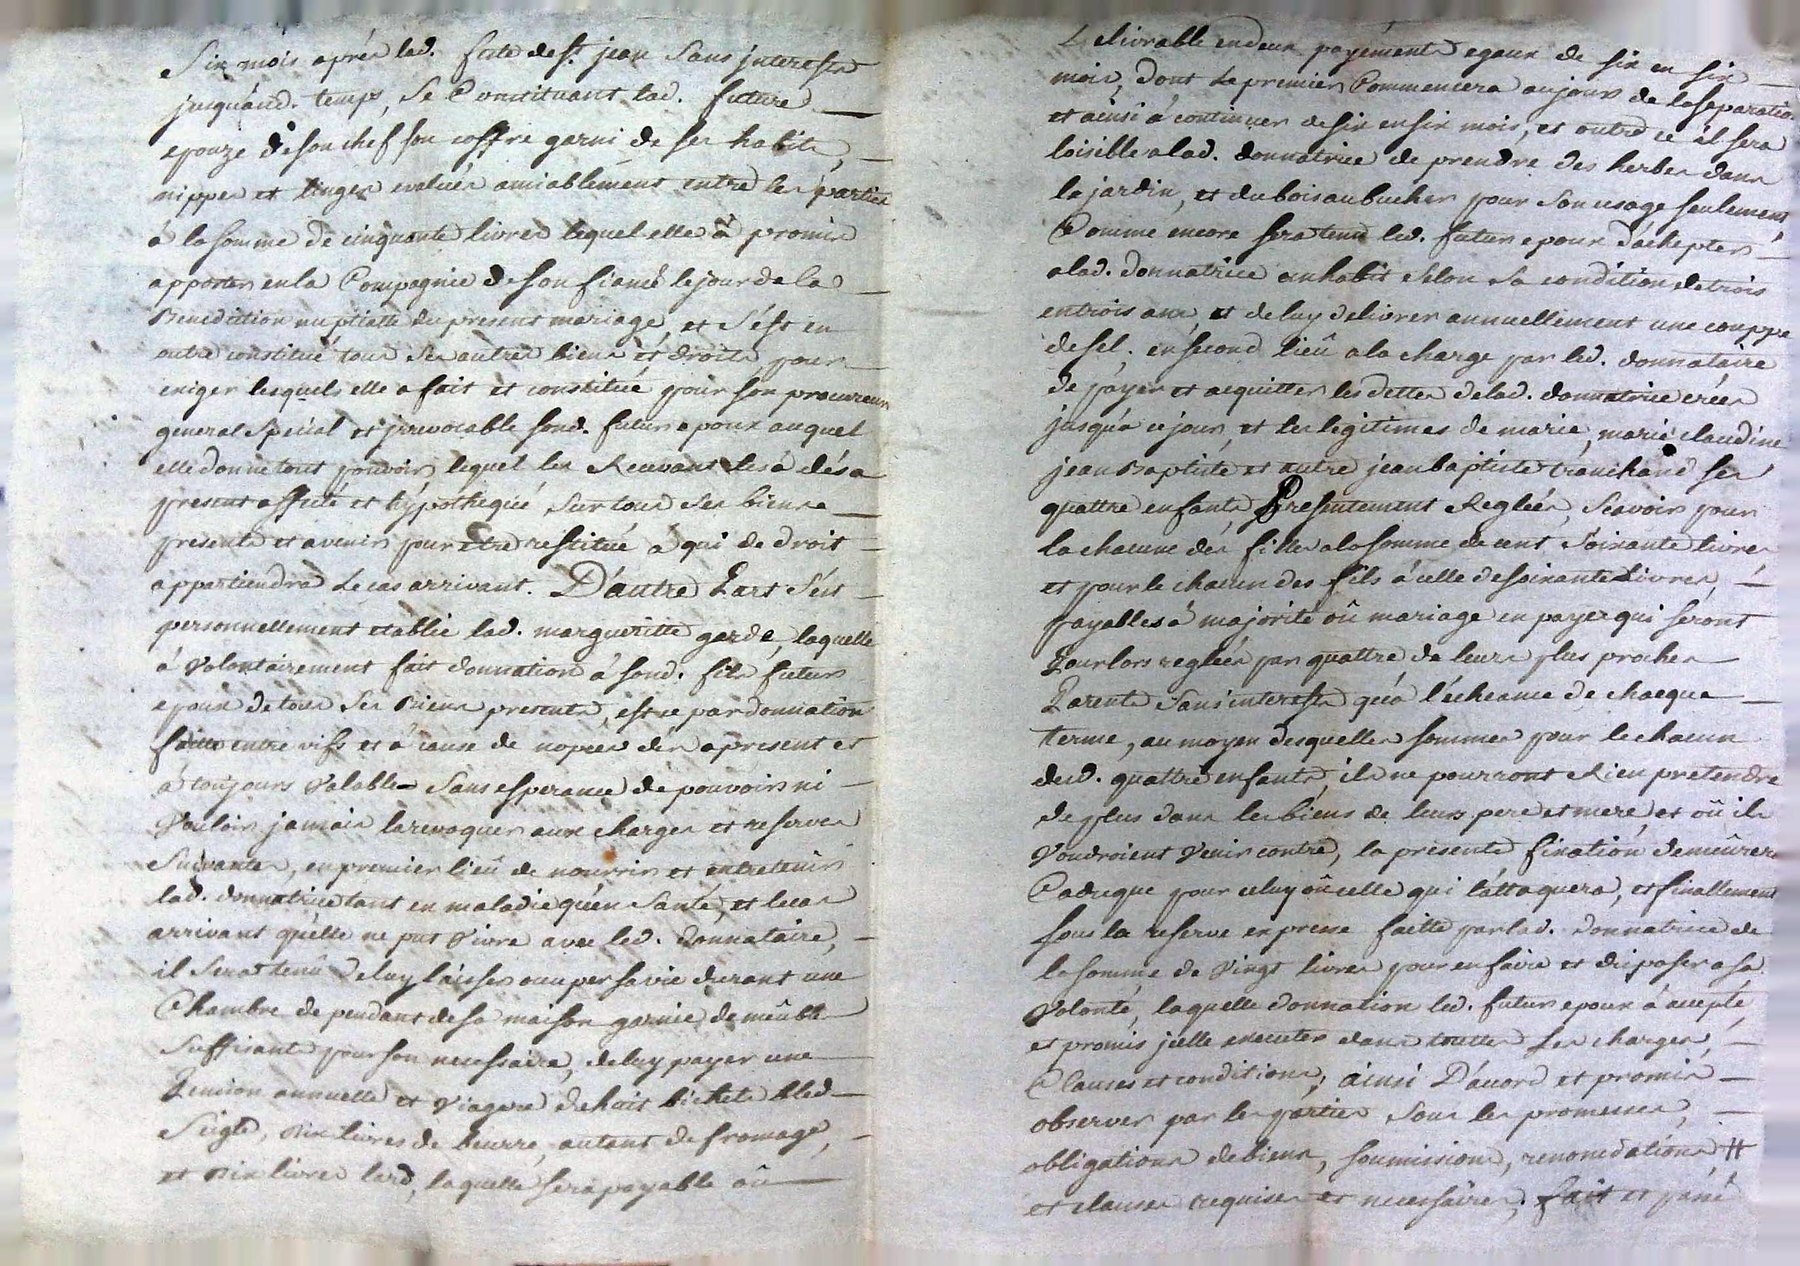 Six mois aprés lad. fete de st. jean Sans jnterests
jusquaud. temps, Se Constituant lad. future
epouze de son chef son coffre garni de ses habits,
nippes et linges evalués amiablement entre les parties
à la somme de cinquante livres lequel elle à promis
apporter en la Compagnie de son fiancé le jour de la
Benediction nuptialle du present mariage, et s'est en
outre constitué tous Ses autres biens et droits pour
exiger lesquels elle a fait et constitué pour son procureur
general Special et jrrevocable sond. futur epoux auquel
elle donne tout pouvoir, lequel les Recevant les à dés a
present affecté et hypothequé sur tous Ses biens
presents et avenir pour etre restitué a qui de droit
appartiendra le cas arrivant. D'autre Part S'est
personnellement etablie lad. margueritte garde, laquelle
à Volontairement fait donnation à sond. fils futur
epoux de tous Ses Biens presents, est ce par donnation
faitte entre vifs et à cause de nopces des apresent et
à toujours Valable Sans esperance de pouvoir ni
Vouloir jamais la revoquer aux charges et reserves
Suivantes, en premier lieû de nourrir et entretenir
lad. donnatrice tant en maladie qu'en Santé, et le cas
arrivant qu'elle ne put Vivre avec led. donnataire,
il Sera tenû de luy laisser occuper sa vie durant une
Chambre dependant de sa maison garnie de meûble
Suffisants pour son necessaire, de luy payer une
Pension annuelle et Viagere de huit bichets bled
Seigle, Dix livres de beurre, autant de fromage,
et Dix livres lard, laquelle sera payable où
Delivrable en deux payéments egaux de six en six
mois, dont le premier Commencera au jour de la separation
et ainsi à continuer de six en six mois, et outre ce il sera
loisible a lad. donnatrice de prendre des herbes dans
le jardin, et du bois au bucher pour Son usage seulement,
Comme encore sera tenu led. futur epoux d'achepter
a lad. donnatrice un habit selon sa condition de trois
en trois ans, et de luy delivrer annuellement une couppe
de sel. en second lieû a la charge par led. donnataire
de payer et acquitter les dettes de lad. donnatrice creés
jusqu'a ce jour, et les legitimes de marie, marie claudine
jean Baptiste et autre jean baptiste tranchand ses
quattre enfants Presentement Reglées, Scavoir pour
la chacune des filles a la somme de cent Soixante livres
et pour le chacun des fils à celle de soixante Livres
payables à majorité où mariage en payes qui séront
Pour lors regleés par quattre de leurs plus proches
Parents Sans interests qu'à l'écheance de chaque
terme, au moyen desquelles sommes pour le chacun
desd. quattre enfants ils ne pourront Rien pretendre
de plus dans les biens de leurs pere et mere, et où ils
voudroient Venir contre, la présente fixation demeurera
Caduque pour celuy où celle qui l'attaquera, et finallement
sous la reserve expresse faitte par lad. donnatrice de
la somme de Vingt livres pour en faire et disposer a sa
Volonté, laquelle donnation led. futur epoux à accepté
et promis jcelle executer dans touttes Ses charges,
Clauses et conditions, ainsi D'acord et promis
observer par les parties Sous les promesses,
obligations de biens, soumissions, renonciations #
et clauses requises et necessaires. fait et passé